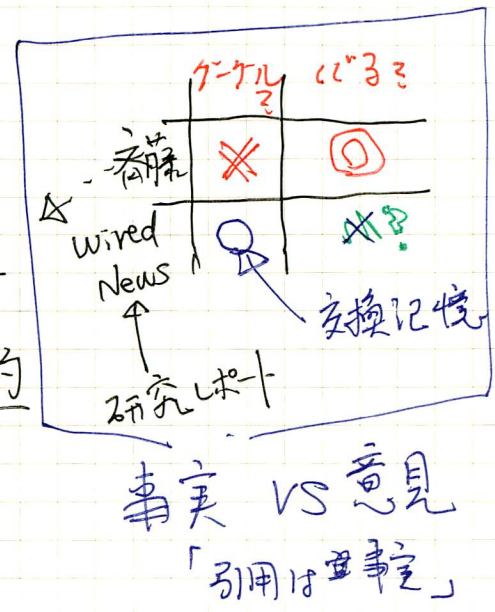 グーグル
?
斎藤
Wired
News
交換記憶
研究レポート
的
事実 VS 意見
「引用は事実」